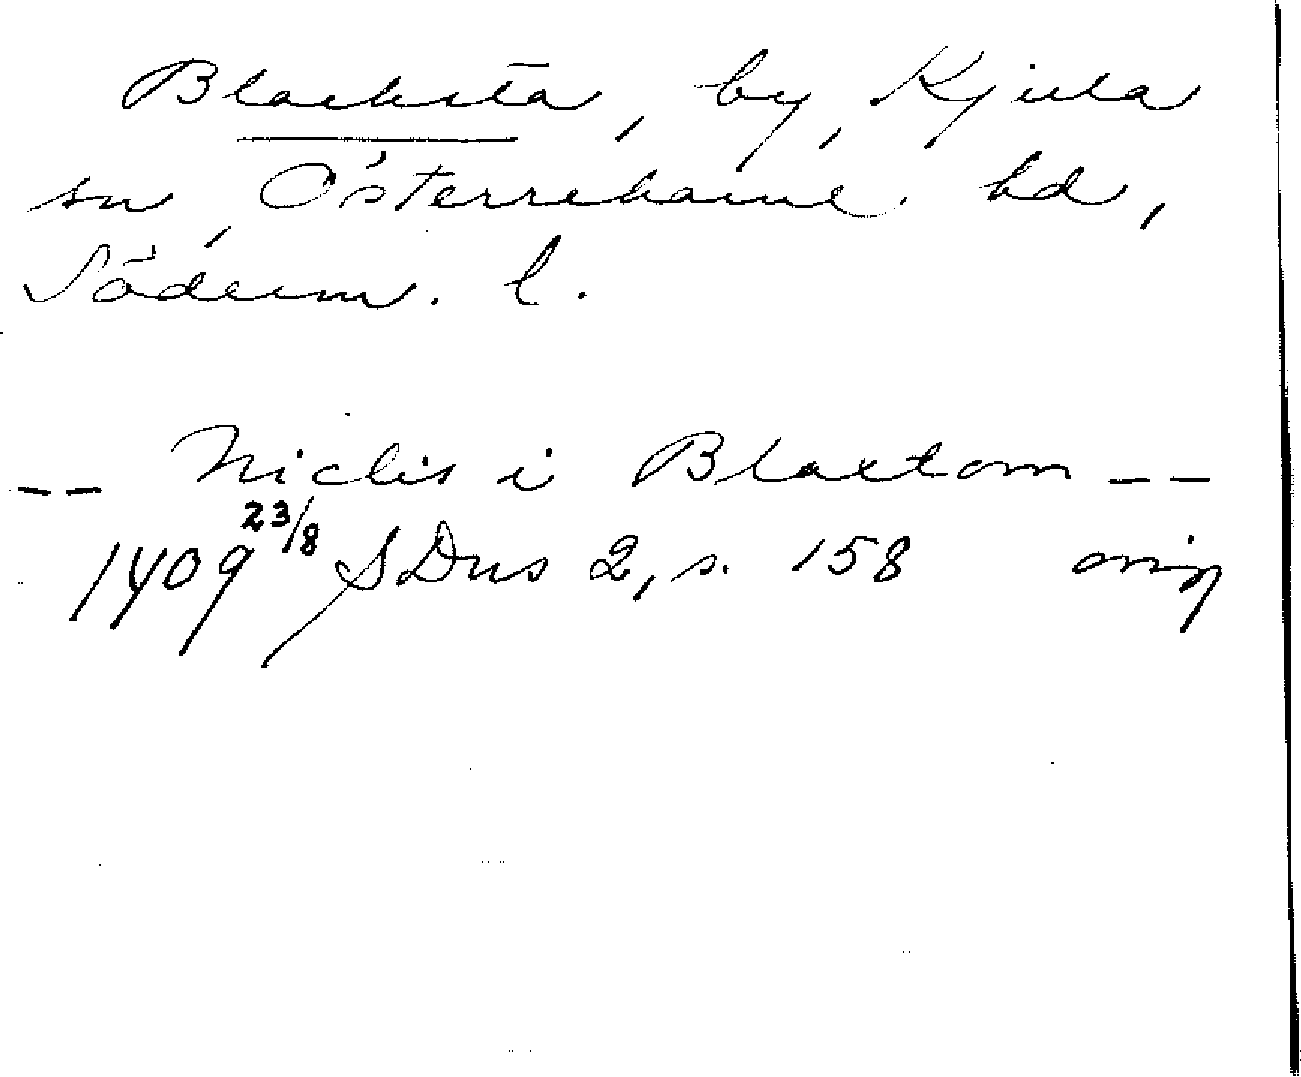 Blacksta, by, Kjula
sn, Österrekarne hd,
Söderm. l.
-- Niclis i Blaxtom --
1409 23/8 SDns 2, s. 158 orig